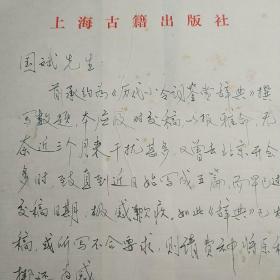 上海古籍出版社
国斌先生：
前承约为《历代小令词鉴赏辞典》撰
写数题，本应及时交稿，以报雅命，无
奈近三个月来，干扰甚多，又曾去北京开会
多时，致直到近日始写成五篇，而早已过
交稿日期，极感歉疚，如此《辞典》已发
稿，或所写不合要求，则请费神将原稿
掷还